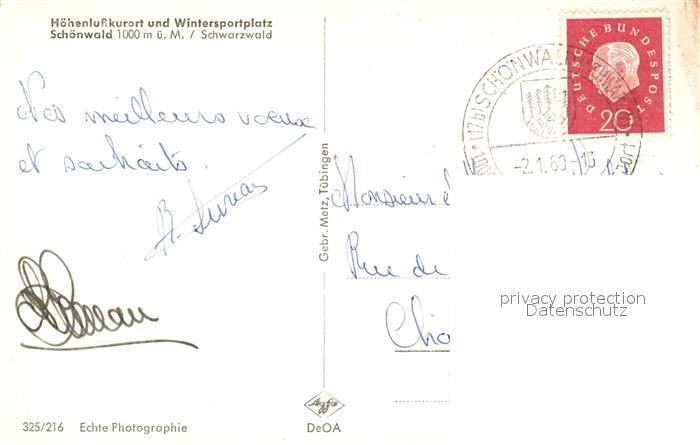 Höhenluftkurort und Wintersportplatz
Schönwald 1000 m ü. M. / Schwarzwald
Nos meilleurs voeux
et souhaits.
Gebr. Metz, Tübingen
325/216 Echte Photographie
Agfa
DeOA
DEUTSCHE BUNDESPOST
20
(17b) SCHÖNWALD
-2.1.60-13
Monsieur
Rue de
privacy protection
Datenschutz